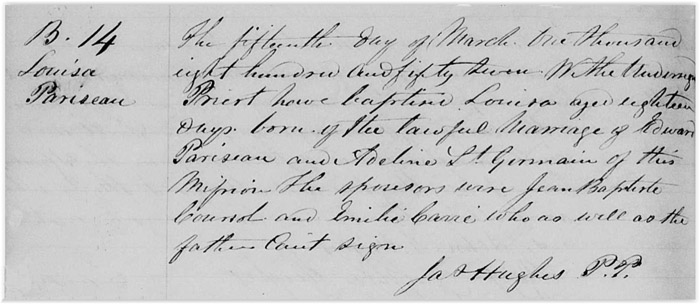 B. 14
Louisa
Pariseau
The fifteenth day of March One thousand
eight hundred and fifty Seven We the Undersign
Priest have baptised Louisa aged eighteen
days born of the lawful Marriage of Edward
Pariseau and Adeline St. Germain of this
Mission The sponsors were Jean Baptiste
and Emilie Carrie who as well as the
father Can't sign
Jas Hughes P.P.